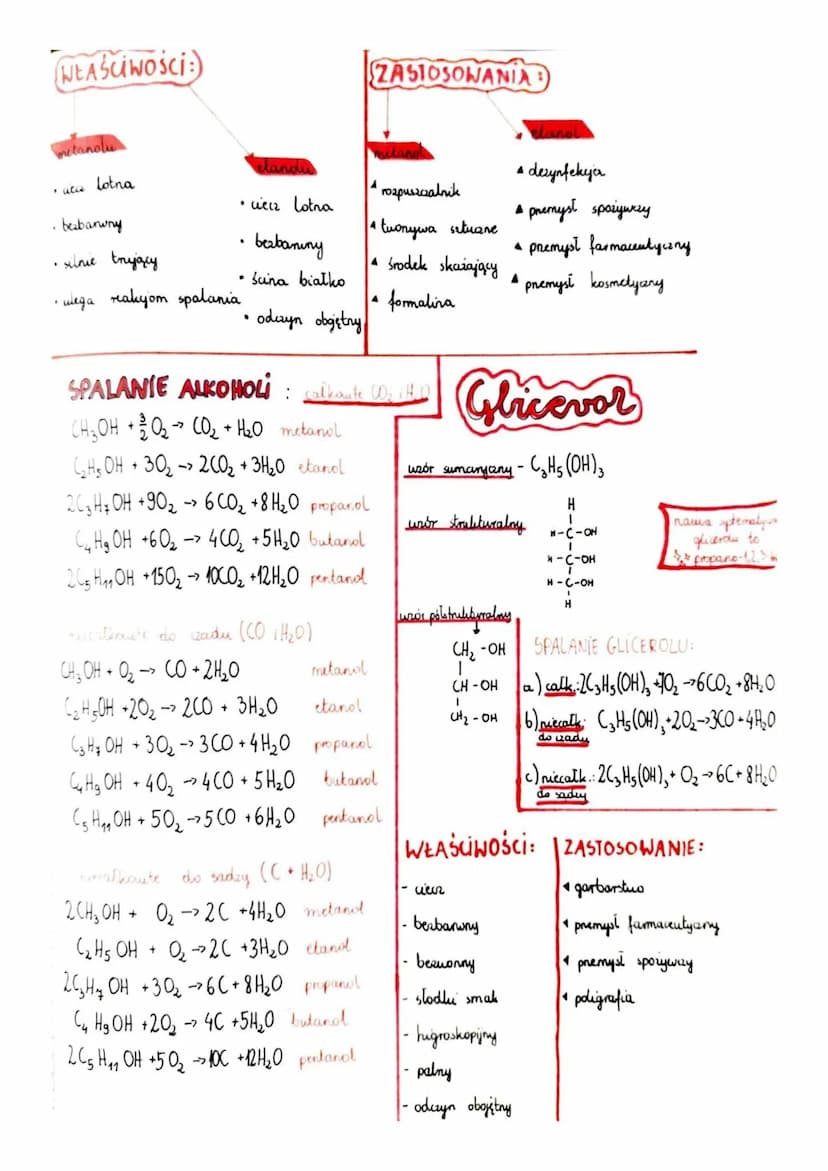 WŁAŚCIWOŚCI:
metanolu
• ciecz lotna
• bezbarwny
• silnie trujący
• ulega reakcjom spalania
etanolu
• ciecz lotna
• bezbarwny
• ścina białko
• odczyn obojętny
ZASTOSOWANIA:
metanol
rozpuszczalnik
tworzywa sztuczne
środek skażający
formalina
etanol
dezynfekcja
przemysł spożywczy
przemysł farmaceutyczny
przemysł kosmetyczny
SPALANIE ALKOHOLI : całkowite CO₂ i H₂O
CH₃OH + 3/2 O₂ → CO₂ + H₂O metanol
C₂H₅OH + 3O₂ → 2CO₂ + 3H₂O etanol
2C₃H₇OH + 9O₂ → 6CO₂ + 8H₂O propanol
C₄H₉OH + 6O₂ → 4CO₂ + 5H₂O butanol
2C₅H₁₁OH + 15O₂ → 10CO₂ + 12H₂O pentanol
niecałkowite do czadu (CO i H₂O)
CH₃OH + O₂ → CO + 2H₂O metanol
C₂H₅OH + 2O₂ → 2CO + 3H₂O etanol
C₃H₇OH + 3O₂ → 3CO + 4H₂O propanol
C₄H₉OH + 4O₂ → 4CO + 5H₂O butanol
C₅H₁₁OH + 5O₂ → 5CO + 6H₂O pentanol
niecałkowite do sadzy (C + H₂O)
2CH₃OH + O₂ → 2C + 4H₂O metanol
C₂H₅OH + O₂ → 2C + 3H₂O etanol
2C₃H₇OH + 3O₂ → 6C + 8H₂O propanol
C₄H₉OH + 2O₂ → 4C + 5H₂O butanol
2C₅H₁₁OH + 5O₂ → 10C + 12H₂O pentanol
Glicerol
wzór sumaryczny - C₃H₅(OH)₃
wzór strukturalny
H
H-C-OH
H-C-OH
H-C-OH
H
nazwa
glicerolu to
propano-1,2,3
wzór półstrukturalny
CH₂-OH
CH-OH
CH₂-OH
SPALANIE GLICEROLU:
a) całk.: 2C₃H₅(OH)₃ + 7O₂ → 6CO₂ + 8H₂O
b) niecałk. C₃H₅(OH)₃ + 2O₂ → 3CO + 4H₂O
do czadu
c) niecałk.: 2C₃H₅(OH)₃ + O₂ → 6C + 8H₂O
do sadzy
WŁAŚCIWOŚCI:
- ciecz
- bezbarwny
- bezwonny
- słodki smak
- higroskopijny
- palny
- odczyn obojętny
ZASTOSOWANIE:
garbarstwo
przemysł farmaceutyczny
przemysł spożywczy
poligrafia